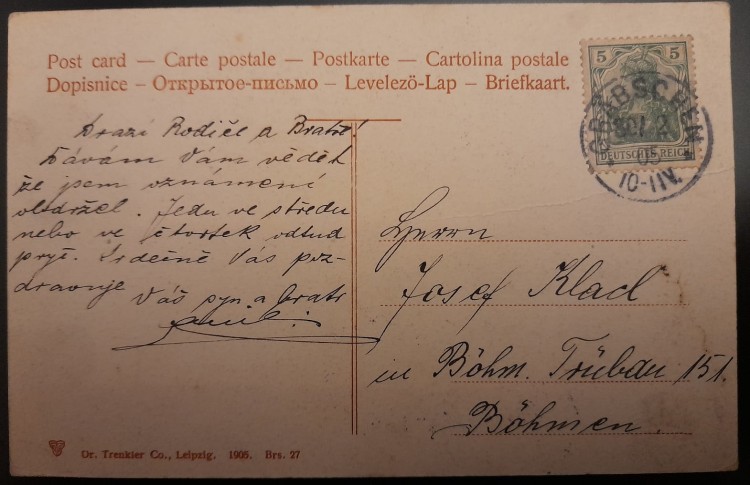 Post card — Carte postale — Postkarte — Cartolina postale
Dopisnice — Открытое-письмо — Levelező-Lap — Briefkaart.
5
DEUTSCHES REICH
10-11V.
Drazí Rodiče a Bratře!
Dávám Vám vědět
že jsem oznámení
obdržel. Jedu ve středu
nebo ve čtvrtek odtud
pryč. Srdečně Vás poz-
dravuje
Váš syn a bratr
Herrn
Josef Klacl
in Böhm. Trübau 151.
Böhmen.
Dr. Trenkler Co., Leipzig. 1905. Brs. 27